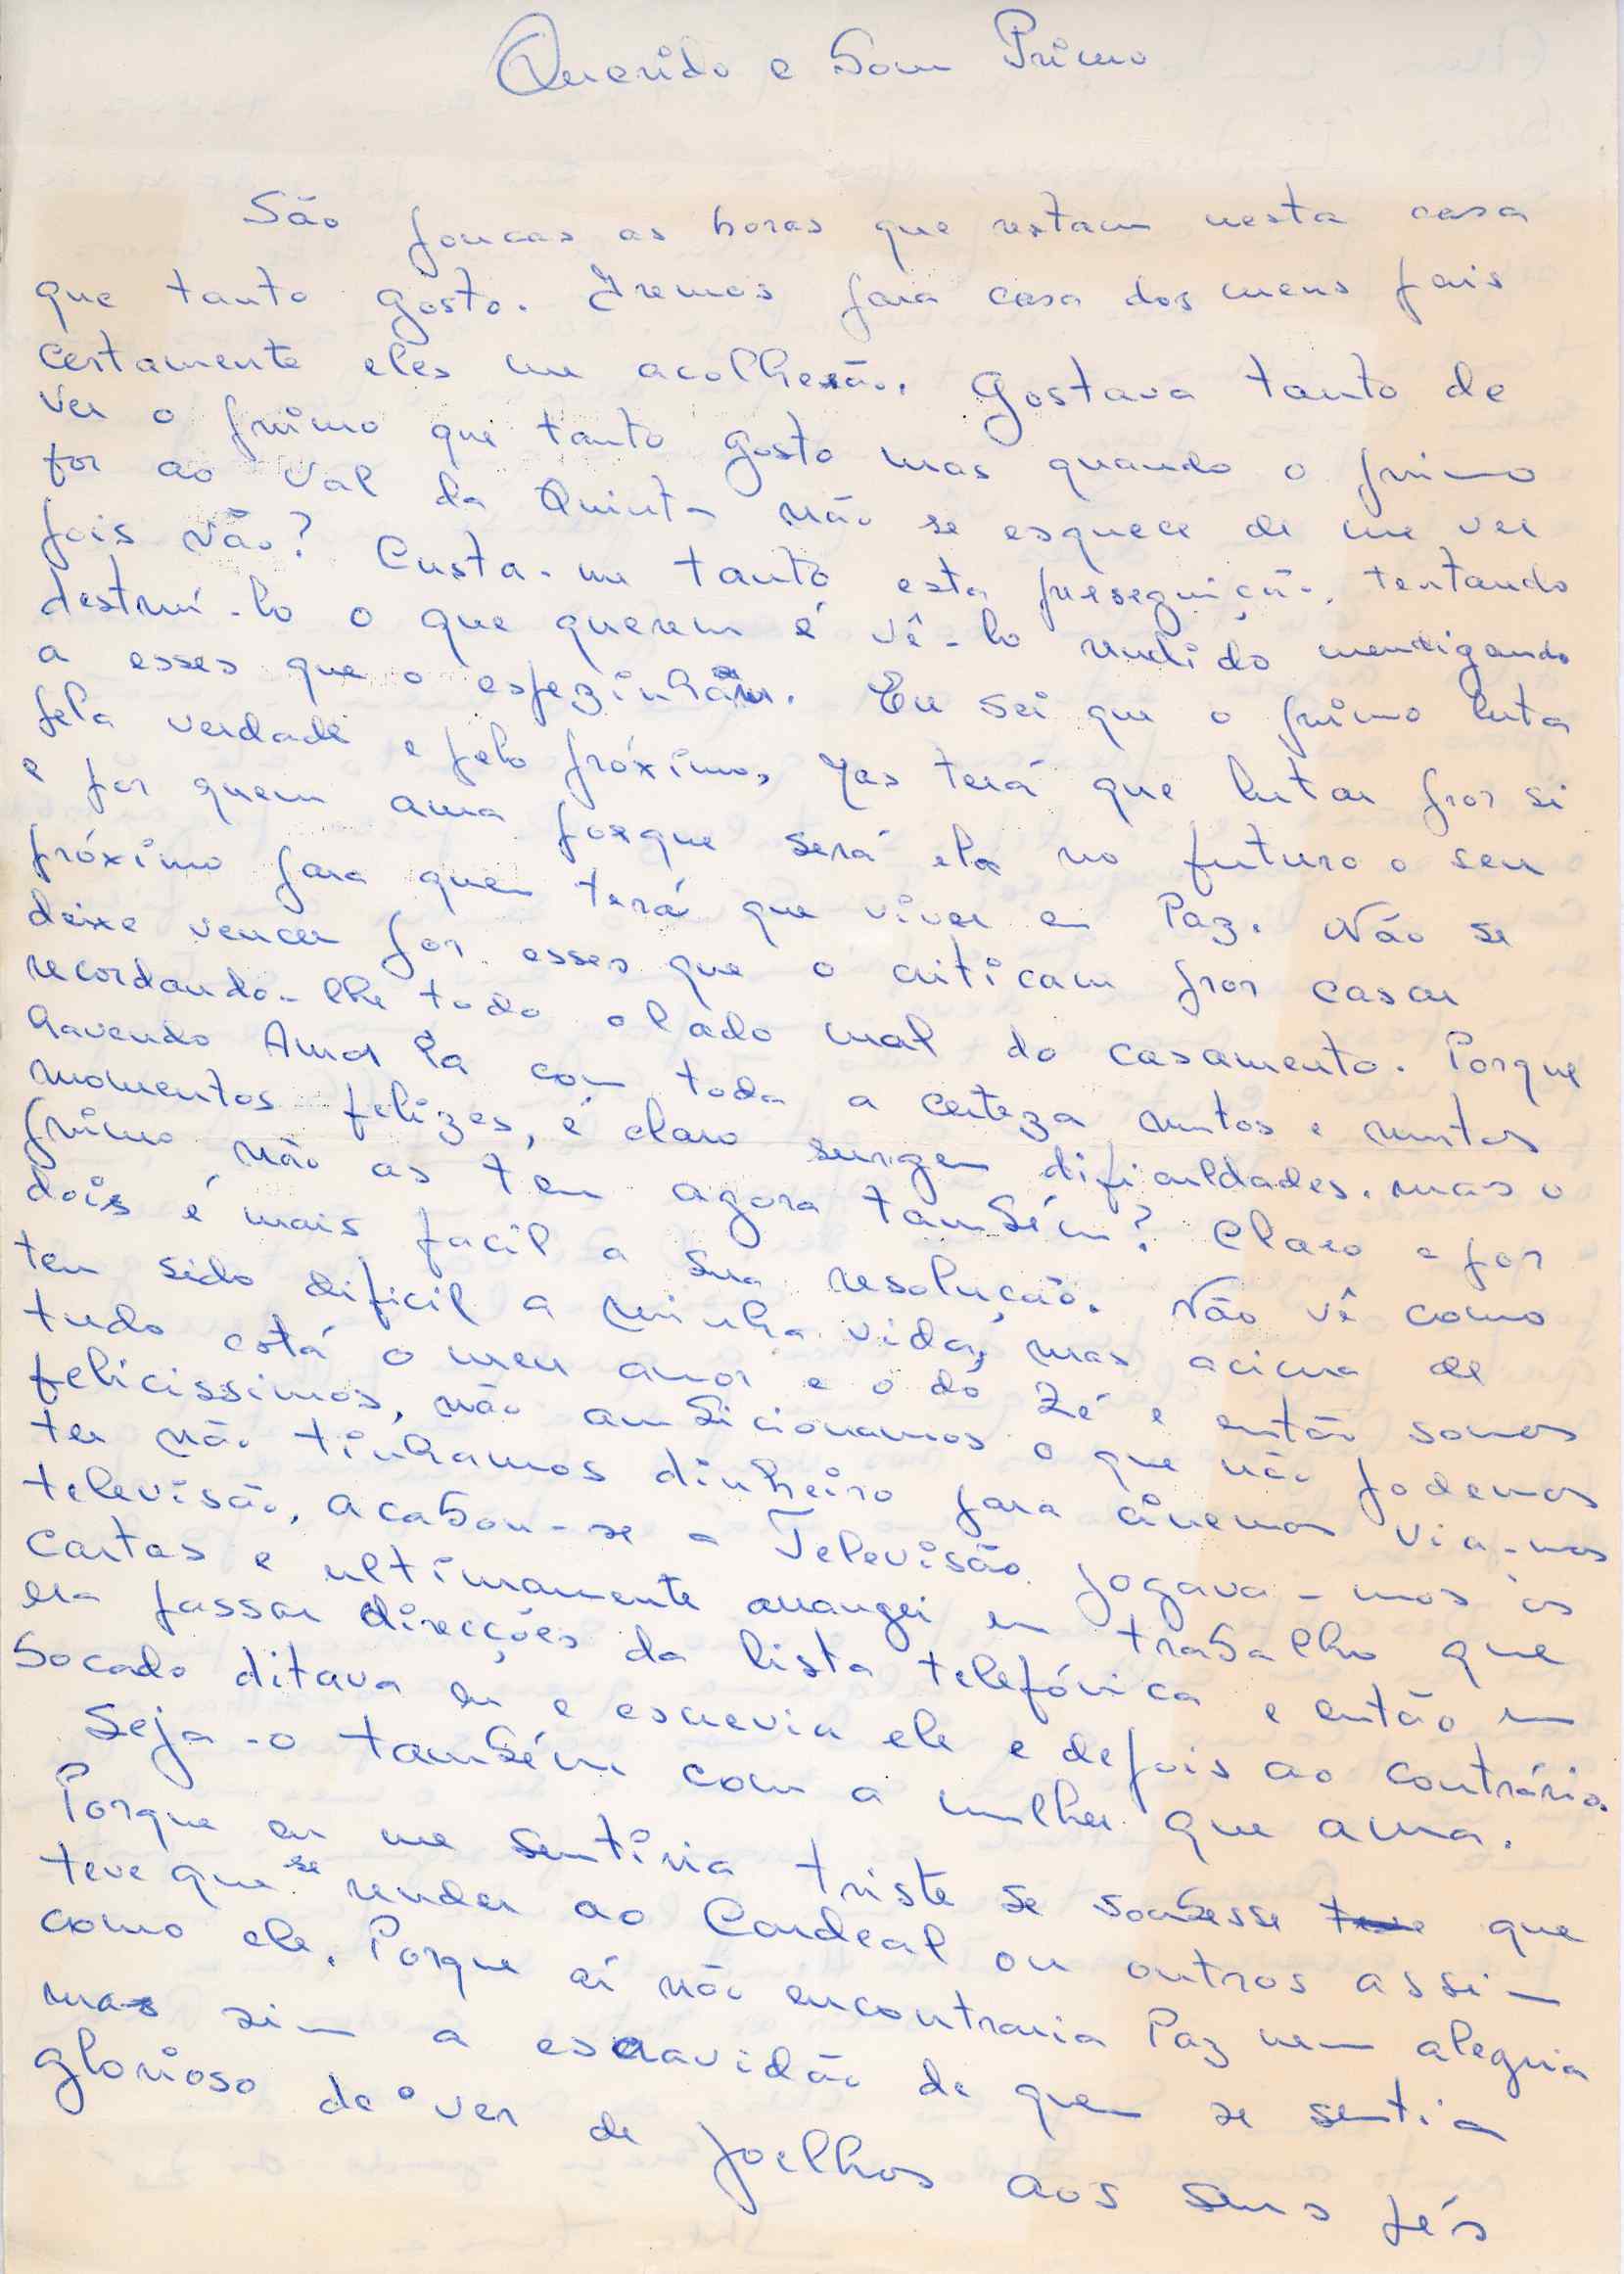 Querido e bom Primo
São poucas as horas que restam nesta casa
que tanto gosto. Iremos para casa dos meus pais
certamente eles me acolherão. Gostava tanto de
ver o primo que tanto gosto mas quando o primo
for ao Val da Quinta não se esquece de me ver
pois não? Custa-me tanto esta preseguição, tentando
destrui-lo o que querem é vê-lo rendido mendigando
a esses que o espezinham. Eu sei que o primo luta
pela verdade e pelo próximo, Mas terá que lutar por si
e por quem ama porque será ela no futuro o seu
próximo para quem terá que viver em Paz. Não se
deixe vencer por esses que o criticam por casar
recordando-lhe todo o lado mal do casamento. Porque
havendo Amor há com toda a certeza muitos e muitos
momentos felizes, é claro surgem dificuldades. mas o
primo não as tem agora também? Claro e por
dois é mais facil a sua resolução. Não vê como
tem sido dificil a minha vida, mas acima de
tudo está o meu amor e o do Zé e então somos
felicissimos, não ambicionamos o que não podemos
ter não tinhamos dinheiro para cinemas via-mos
televisão, acabou-se a Televisão jogava-mos ás
cartas e ultimamente arrangei um trabalho que
era passar direcções da lista telefónica e então um
bocado ditava eu e escrevia ele e depois ao contrário.
Seja-o também com a mulher que ama.
Porque eu me sentiria triste se soubesse teve que
teve que se render ao Cardeal ou outros assim
como ele. Porque aí não encontraria Paz nem alegria
mas sim a escravidão de quem se sentia
glorioso de o ver de joelhos aos seus pés